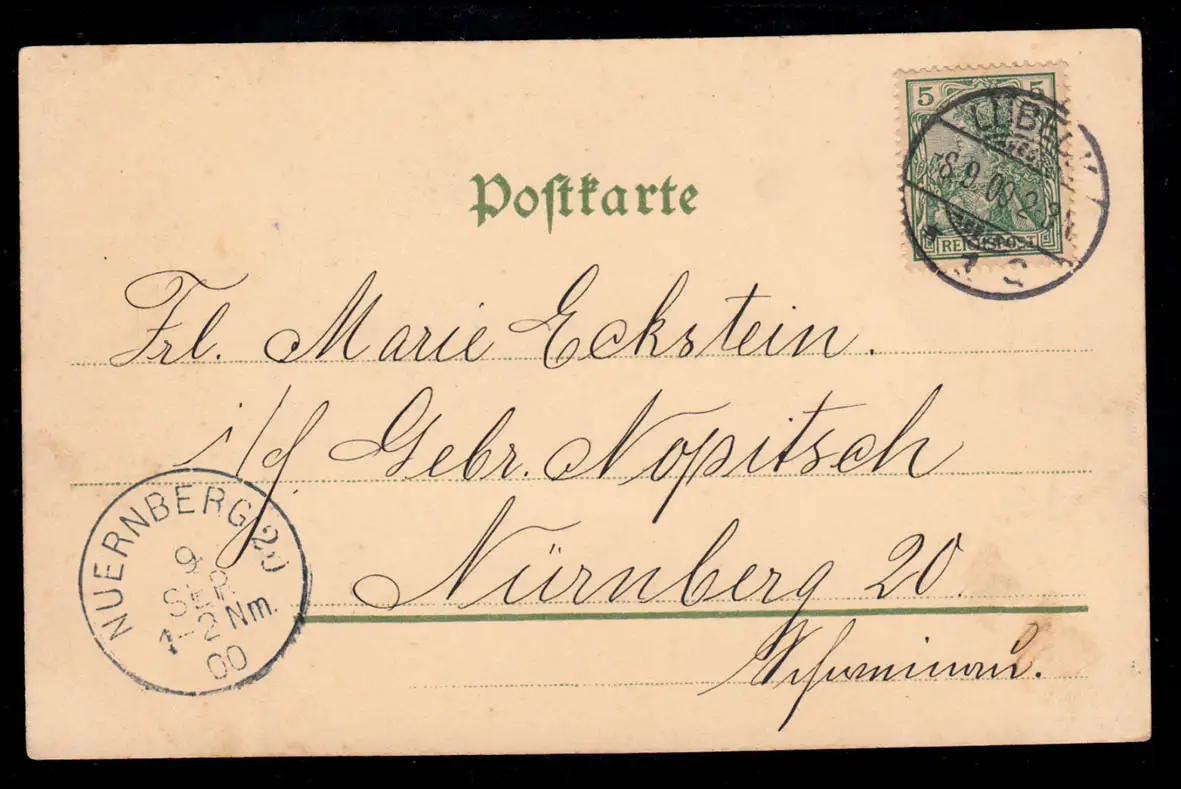 5 5
REICHSPOST
LÜBECK
8.9.00 2-3N
1 c
Postkarte
Frl. Marie Eckstein.
i/f. Gebr. Nopitsch
Nürnberg 20
NUERNBERG 20
9
SEP
1-2 Nm.
00